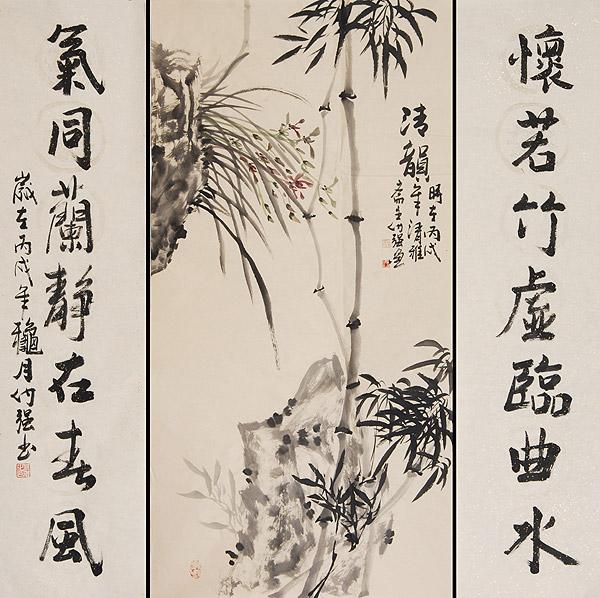 懷若竹虛臨曲水
清韻
時在丙戌
年清雅
齋主仂强画
氣同蘭靜在春風
歲在丙戌年龝月仂强书